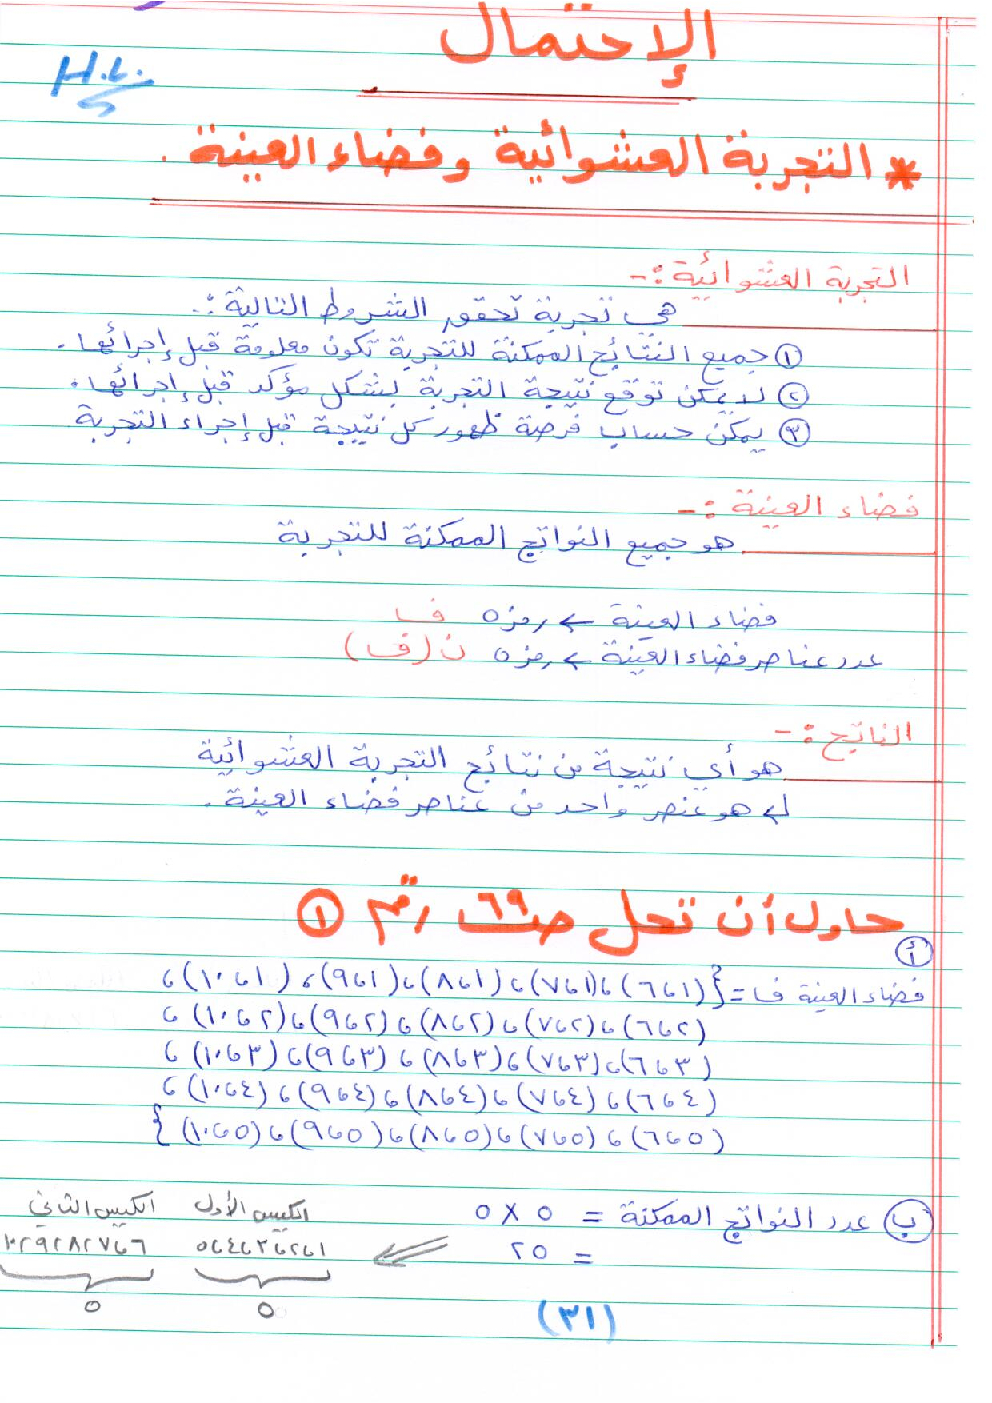 الإحتمال
H.L.
* التجربة العشوائية وفضاء العينة .
التجربة العشوائية :-
هي تجربة تحقق الشروط التالية :.
① جميع النتائج الممكنة للتجربة تكون معلومة قبل إجرائها .
② لا يمكن توقع نتيجة التجربة بشكل مؤكد قبل إجرائها .
③ يمكن حساب فرصة ظهور كل نتيجة قبل إجراء التجربة
فضاء العينة :-
هو جميع النواتج الممكنة للتجربة
فضاء العينة ← رمزه ف
عدد عناصر فضاء العينة ← رمزه ن (ف)
الناتج :-
هو أي نتيجة من نتائج التجربة العشوائية
↵ هو عنصر واحد من عناصر فضاء العينة .
حاول أن تحل صـ ٦٩ رقم ①
أ
فضاء العينة ف = { (١،٦)،(١،٧)،(١،٨)،(١،٩)،(١،١٠)،
(٢،٦)،(٢،٧)،(٢،٨)،(٢،٩)،(٢،١٠)،
(٣،٦)،(٣،٧)،(٣،٨)،(٣،٩)،(٣،١٠)،
(٤،٦)،(٤،٧)،(٤،٨)،(٤،٩)،(٤،١٠)،
(٥،٦)،(٥،٧)،(٥،٨)،(٥،٩)،(٥،١٠) }
ب عدد النواتج الممكنة = ٥ × ٥
= ٢٥
الكيس الأول الكيس الثاني
١،٢،٣،٤،٥ ٦،٧،٨،٩،١٠
٥ ٥
(٣١)